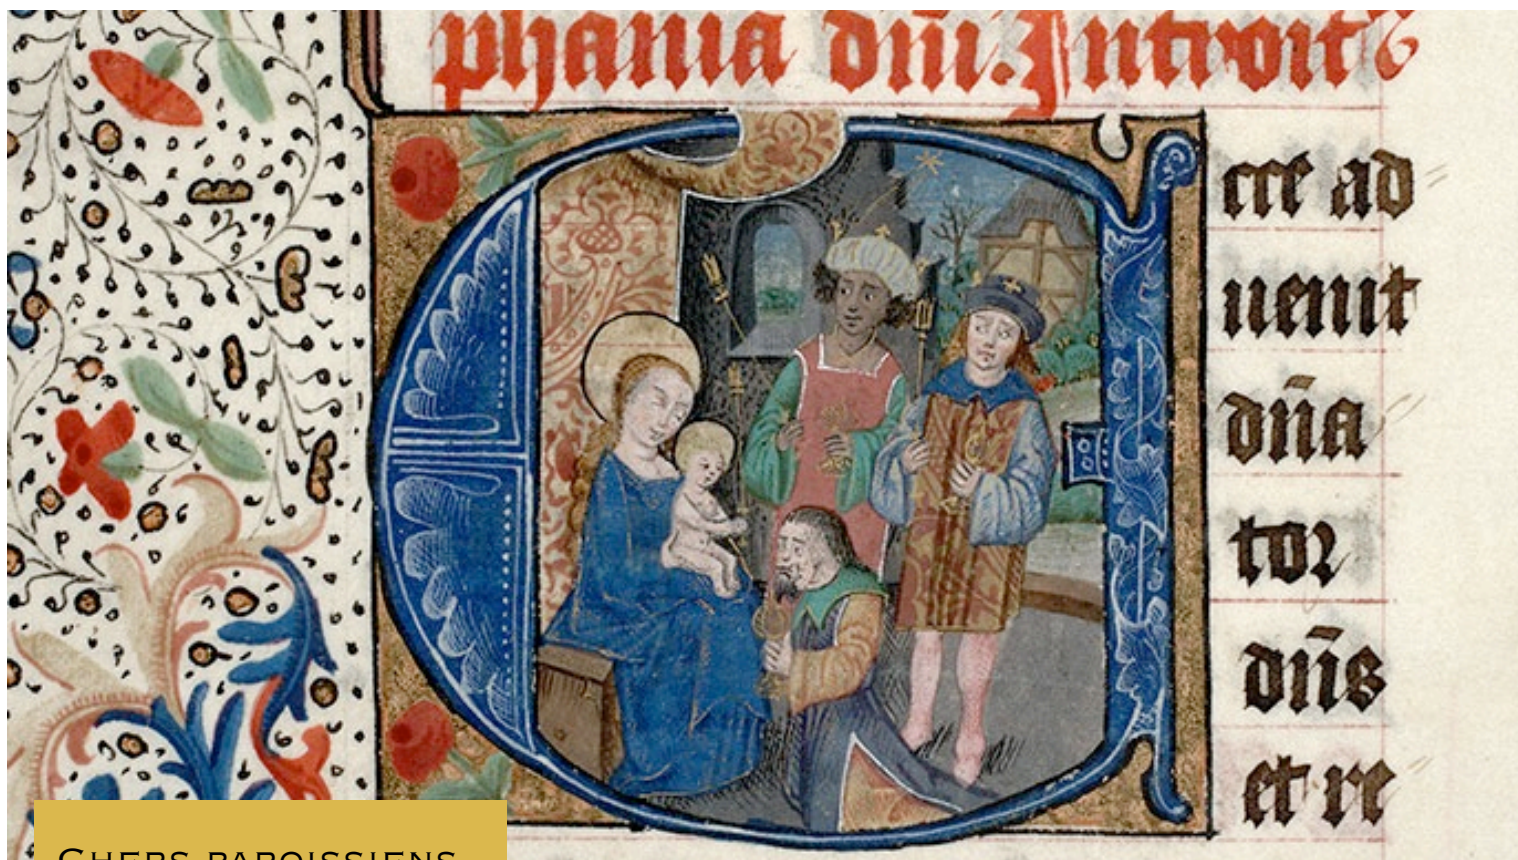 phania dñi. Introitꝰ
Ecce ad
uenit
dña
tor
dñs
et re
CHERS PAROISSIENS